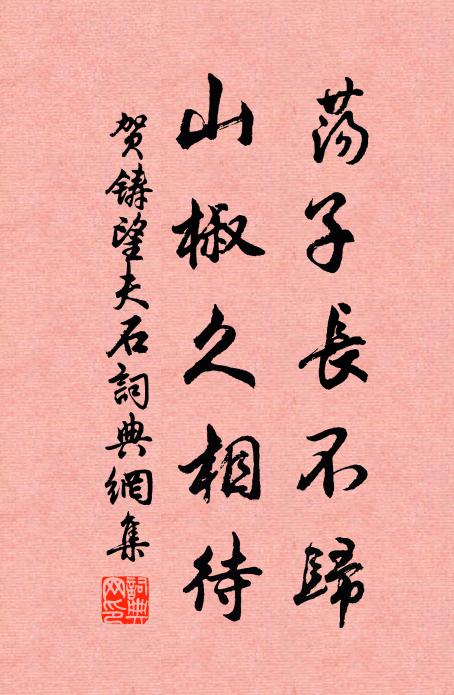 荡子長不歸
山椒久相待
贺鑄望夫石詞典網集
詞典網印